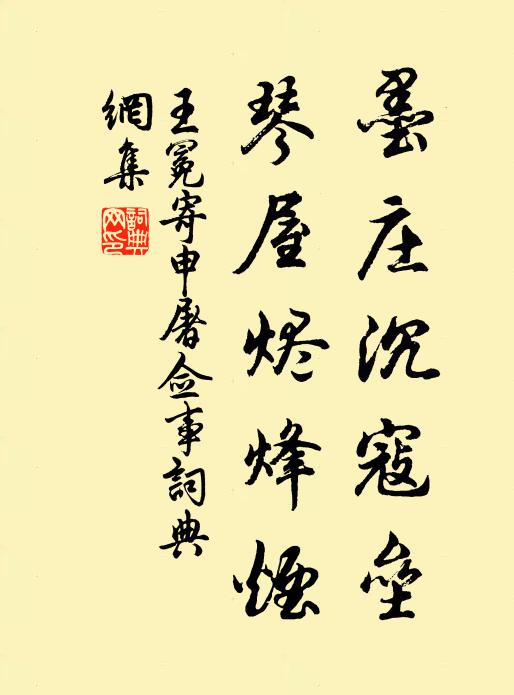 墨庄沉寇垒
琴屋烬烽煙
王冕寄申屠佥事詞典
網集
詞典网印